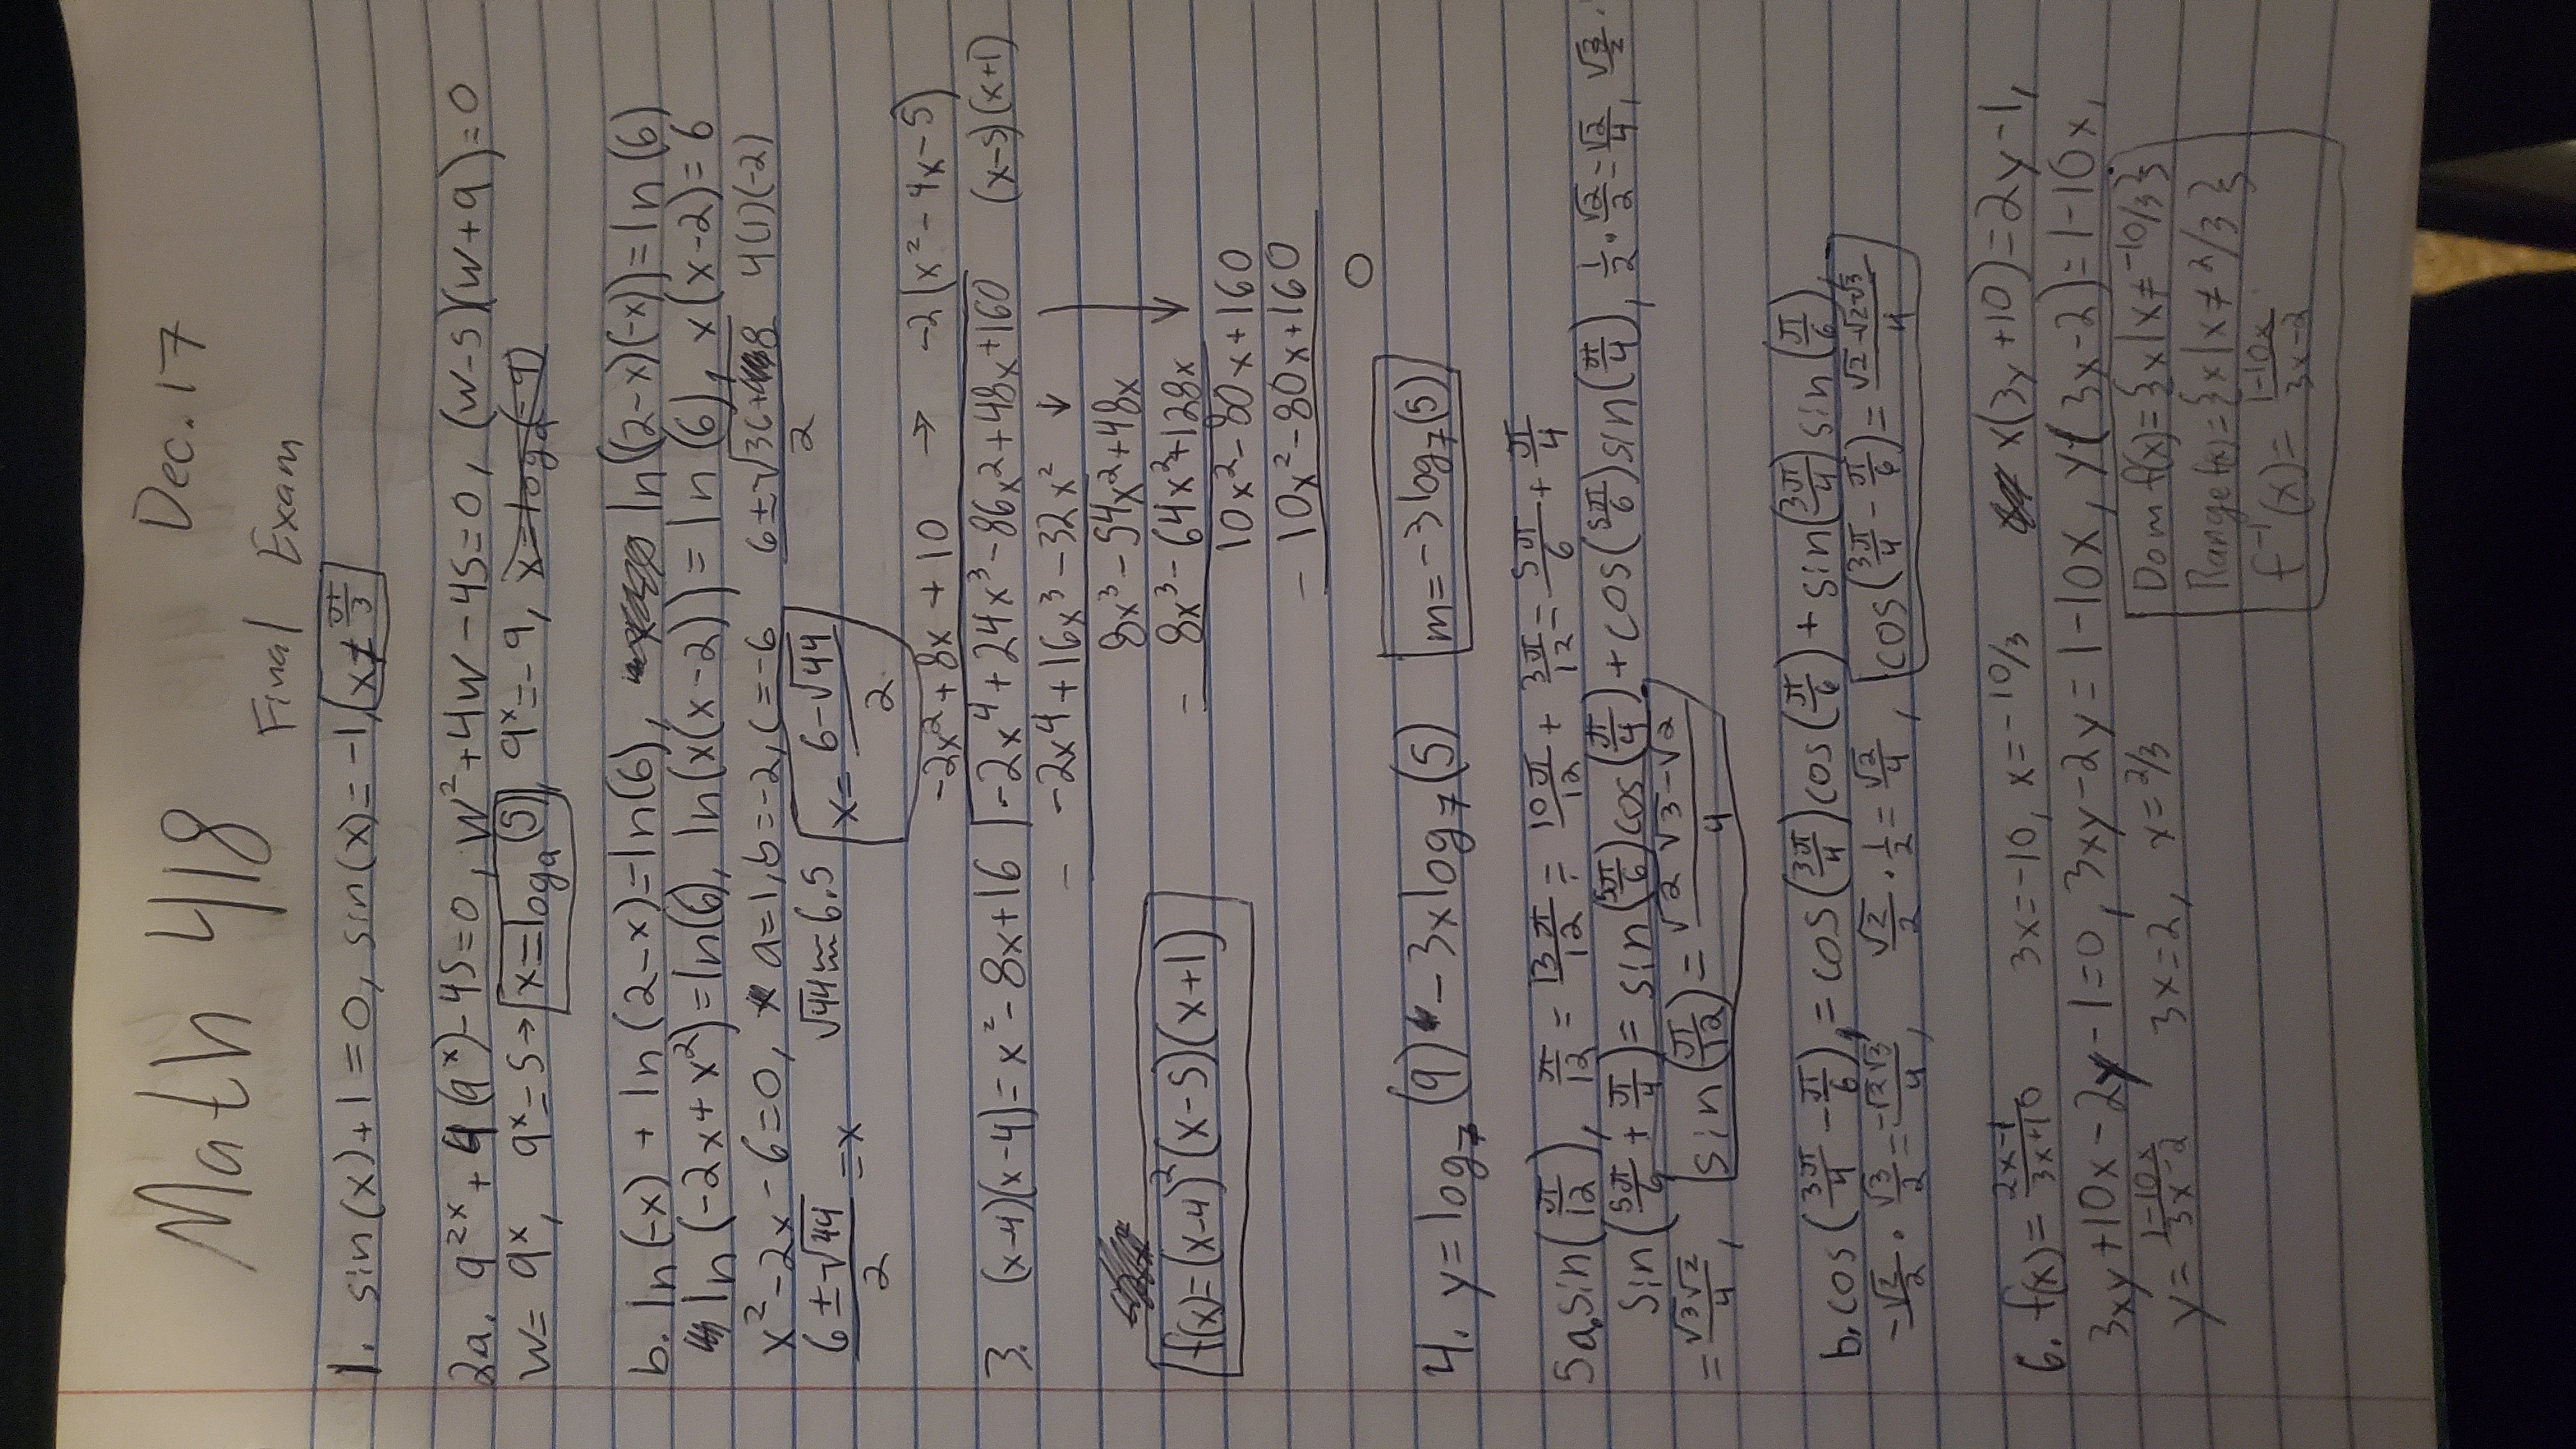 Math 418 Dec. 17
Final Exam
1. sin(x)+1=0, sin(x)=-1, x≠π/3
2a. 9^(2x) + 4(9^x)-45=0, w²+4w-45=0, (w-5)(w+9)=0
w= 9^x, 9^x=5→ x=log₉(5), 9^x=-9, x=log₉(-9)
b. ln(-x) + ln(2-x)=ln(6), ln((2-x)(-x))=ln(6)
ln(-2x+x²)=ln(6), ln(x(x-2))=ln(6), x(x-2)=6
x²-2x-6=0, a=1, b=-2, c=-6 (6±√(36+8))/2 4(1)(-2)
(6±√44)/2 =x √44≈6.5 x=(6-√44)/2
-2x²+8x+10 → -2(x²-4x-5)
3. (x-4)(x-4)=x²-8x+16 -2x⁴+24x³-86x²+48x+160 (x-5)(x+1)
- -2x⁴+16x³-32x² ↓
8x³-54x²+48x
- 8x³-64x²+128x
f(x)=(x-4)²(x-5)(x+1)
10x²-80x+160
- 10x²-80x+160
0
4. y=log₇(9)-3xlog₇(5) m=-3log₇(5)
5a. sin(π/12), π/12 = 13π/12 = 10π/12 + 3π/12 = 5π/6 + π/4
sin(5π/6 + π/4)= sin(5π/6)cos(π/4)+cos(5π/6)sin(π/4), 1/2·√2/2=√2/4, √3/2·
=√3√2/4, sin(π/12)=(√2√3-√2)/4
b. cos(3π/4 - π/6),=cos(3π/4)cos(π/6)+sin(3π/4)sin(π/6),
-√2/2·√3/2=-√2√3/4, √2/2·1/2=√2/4, cos(3π/4-π/6)=(√2-√2√3)/4
6. f(x)=(2x-1)/(3x+10) 3x=-10, x=-10/3 x(3y+10)=2y-1,
3xy+10x-2y-1=0, 3xy-2y=1-10x, y(3x-2)=1-10x,
y=(1-10x)/(3x-2) 3x=2, x=2/3 Dom f(x)={x|x≠-10/3}
Range f(x)={x|x≠2/3}
f⁻¹(x)=(1-10x)/(3x-2)